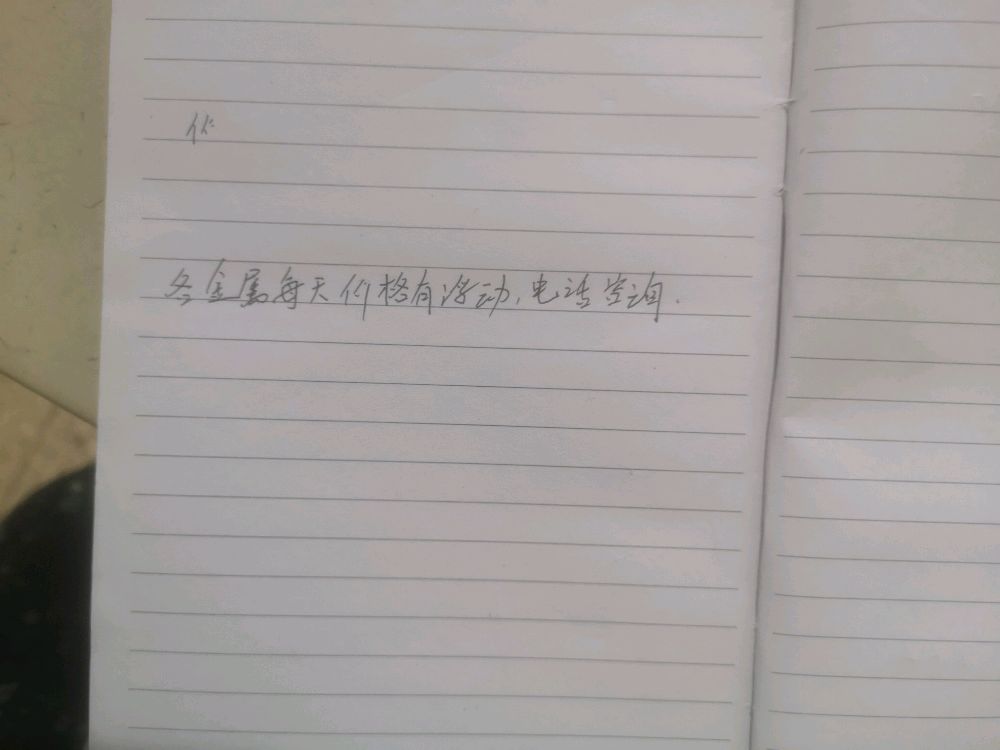 各金属每天价格有浮动,电话咨询.